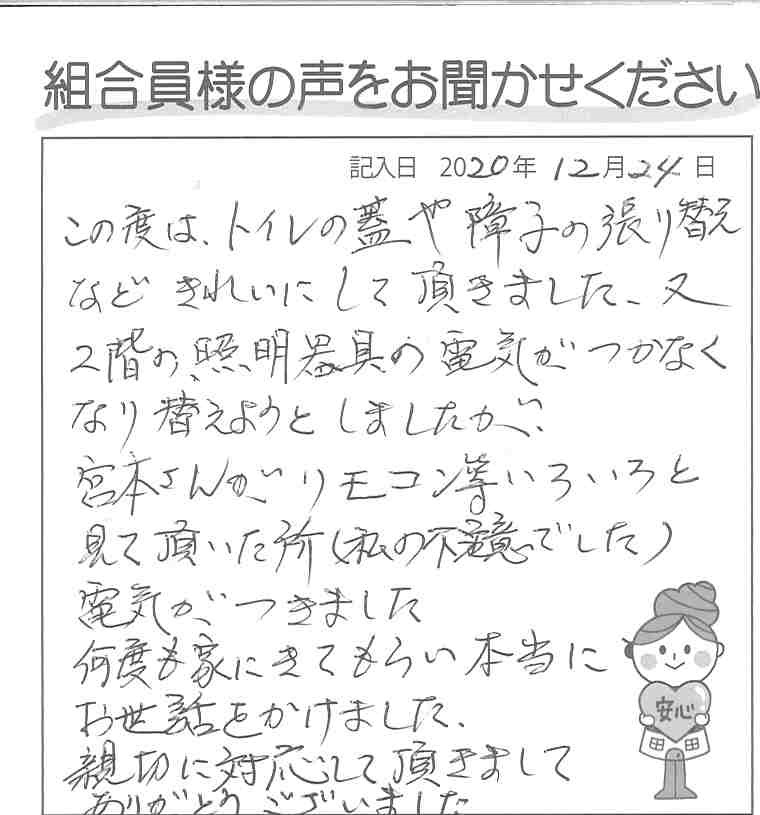 組合員様の声をお聞かせください
記入日 2020年 12月24日
この度は、トイレの蓋や障子の張り替え
などきれいにして頂きました、又
2階の、照明器具の電気がつかなく
なり替えようとしましたが、
宮本さんがリモコン等いろいろと
見て頂いた所(私の不注意でした)
電気が、つきました
何度も家にきてもらい本当に
お世話をかけました、
親切に対応して頂きまして
ありがとうございました
安心